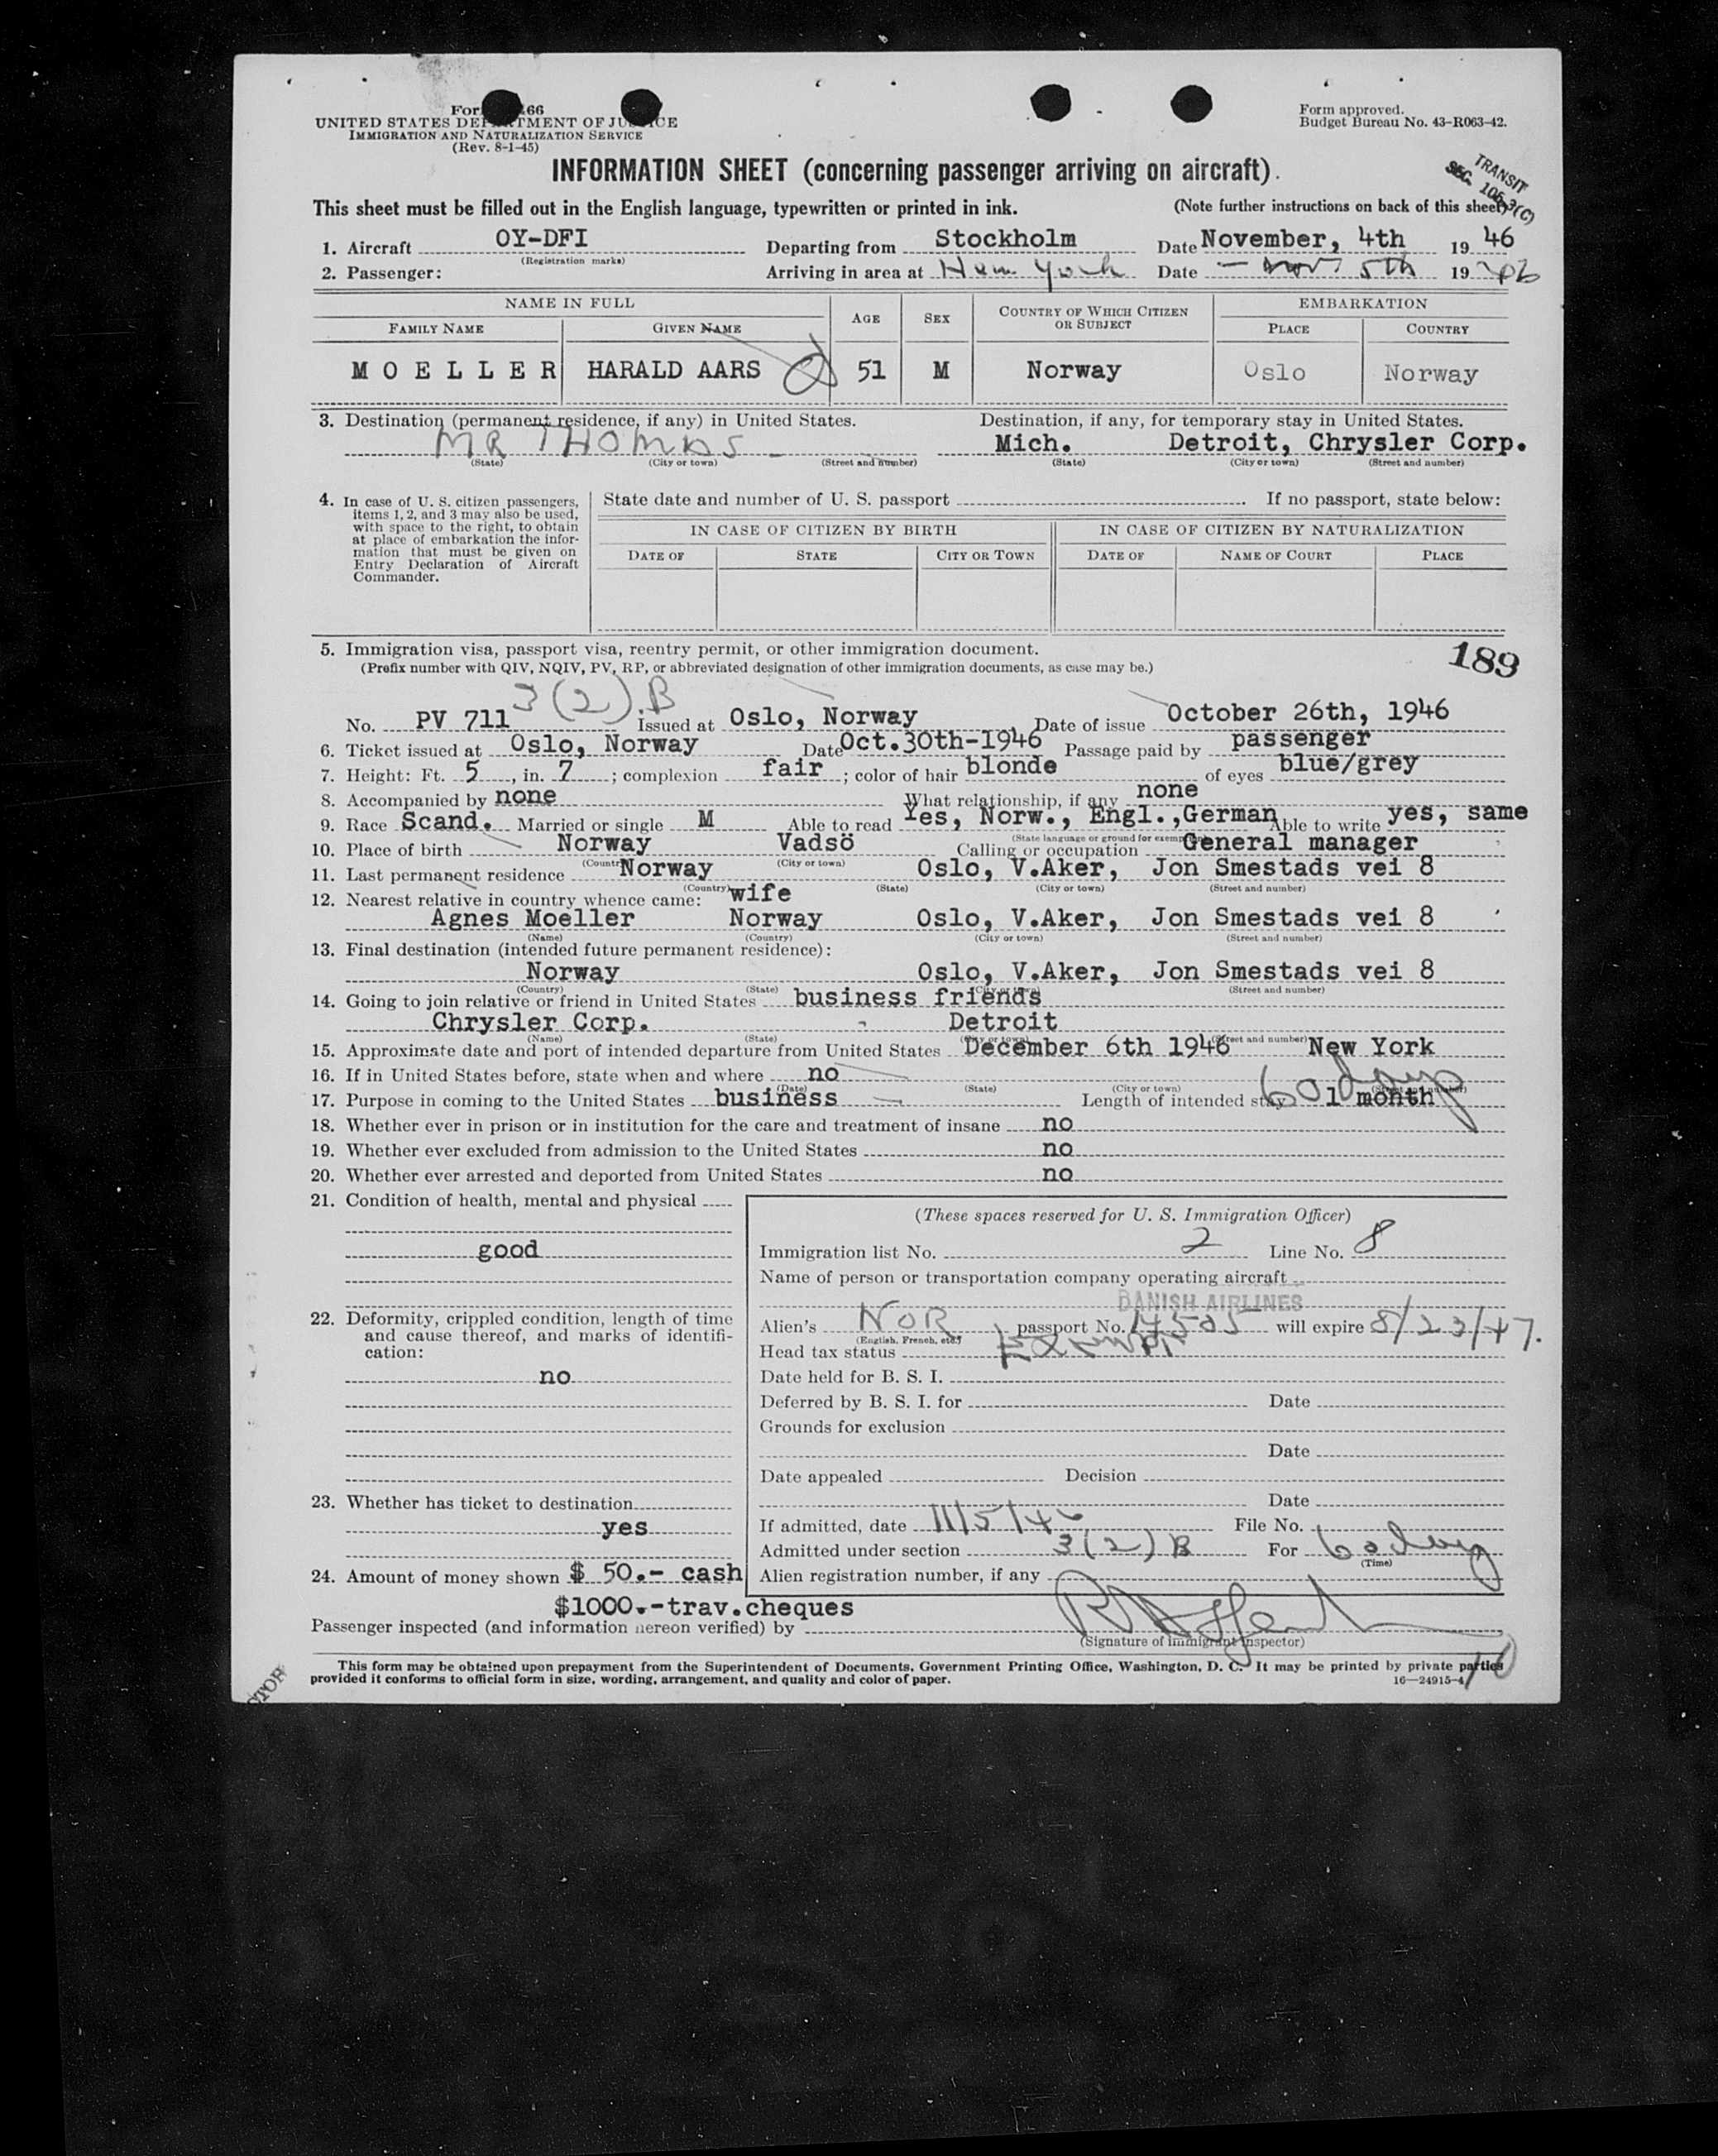 For 66
UNITED STATES DEPARTMENT OF JUSTICE
IMMIGRATION AND NATURALIZATION SERVICE
(Rev. 8-1-45)
Form approved.
Budget Bureau No. 43-R063-42.
INFORMATION SHEET (concerning passenger arriving on aircraft).
TRANSIT
SEC. 106.3(C)
This sheet must be filled out in the English language, typewritten or printed in ink. (Note further instructions on back of this sheet)
1. Aircraft OY-DFI Departing from Stockholm Date November, 4th 19 46
(Registration marks)
2. Passenger: Arriving in area at New York Date Nov 5th 19 46
NAME IN FULL AGE SEX COUNTRY OF WHICH CITIZEN OR SUBJECT EMBARKATION
FAMILY NAME GIVEN NAME PLACE COUNTRY
MOELLER HARALD AARS 51 M Norway Oslo Norway
3. Destination (permanent residence, if any) in United States. Destination, if any, for temporary stay in United States.
MR THOMAS Mich. Detroit, Chrysler Corp.
(State) (City or town) (Street and number) (State) (City or town) (Street and number)
4. In case of U. S. citizen passengers, items 1, 2, and 3 may also be used, with space to the right, to obtain at place of embarkation the information that must be given on Entry Declaration of Aircraft Commander.
State date and number of U. S. passport . If no passport, state below:
IN CASE OF CITIZEN BY BIRTH IN CASE OF CITIZEN BY NATURALIZATION
DATE OF STATE CITY OR TOWN DATE OF NAME OF COURT PLACE
5. Immigration visa, passport visa, reentry permit, or other immigration document. 189
(Prefix number with QIV, NQIV, PV, RP, or abbreviated designation of other immigration documents, as case may be.)
3(2).B
No. PV 711 Issued at Oslo, Norway Date of issue October 26th, 1946
6. Ticket issued at Oslo, Norway Date Oct.30th-1946 Passage paid by passenger
7. Height: Ft. 5, in. 7; complexion fair; color of hair blonde of eyes blue/grey
8. Accompanied by none What relationship, if any none
9. Race Scand. Married or single M Able to read Yes, Norw., Engl.,German Able to write yes, same
(State language or ground for exemption)
10. Place of birth Norway Vadsö Calling or occupation General manager
(Country) (City or town)
11. Last permanent residence Norway Oslo, V.Aker, Jon Smestads vei 8
(Country) (State) (City or town) (Street and number)
12. Nearest relative in country whence came: wife
Agnes Moeller Norway Oslo, V.Aker, Jon Smestads vei 8
(Name) (Country) (City or town) (Street and number)
13. Final destination (intended future permanent residence):
Norway Oslo, V.Aker, Jon Smestads vei 8
(Country) (State) (City or town) (Street and number)
14. Going to join relative or friend in United States business friends
Chrysler Corp. Detroit
(Name) (State) (City or town) (Street and number)
15. Approximate date and port of intended departure from United States December 6th 1946 New York
16. If in United States before, state when and where no
(Date) (State) (City or town) (Street and number)
60 days
17. Purpose in coming to the United States business Length of intended stay 1 month
18. Whether ever in prison or in institution for the care and treatment of insane no
19. Whether ever excluded from admission to the United States no
20. Whether ever arrested and deported from United States no
21. Condition of health, mental and physical
good
22. Deformity, crippled condition, length of time and cause thereof, and marks of identification:
no
23. Whether has ticket to destination
yes
24. Amount of money shown $ 50.- cash
$1000.-trav.cheques
(These spaces reserved for U. S. Immigration Officer)
Immigration list No. 2 Line No. 8
Name of person or transportation company operating aircraft
DANISH AIRLINES
Alien's NOR. passport No. 14505 will expire 8/23/47.
(English, French, etc.)
Head tax status Exempt
Date held for B. S. I.
Deferred by B. S. I. for Date
Grounds for exclusion
Date
Date appealed Decision
Date
If admitted, date 11/5/46 File No.
Admitted under section 3(2)B For 60 days
(Time)
Alien registration number, if any
Passenger inspected (and information hereon verified) by
(Signature of immigrant inspector)
This form may be obtained upon prepayment from the Superintendent of Documents, Government Printing Office, Washington, D. C. It may be printed by private parties
provided it conforms to official form in size, wording, arrangement, and quality and color of paper. 16—24915-4
10
CTOR